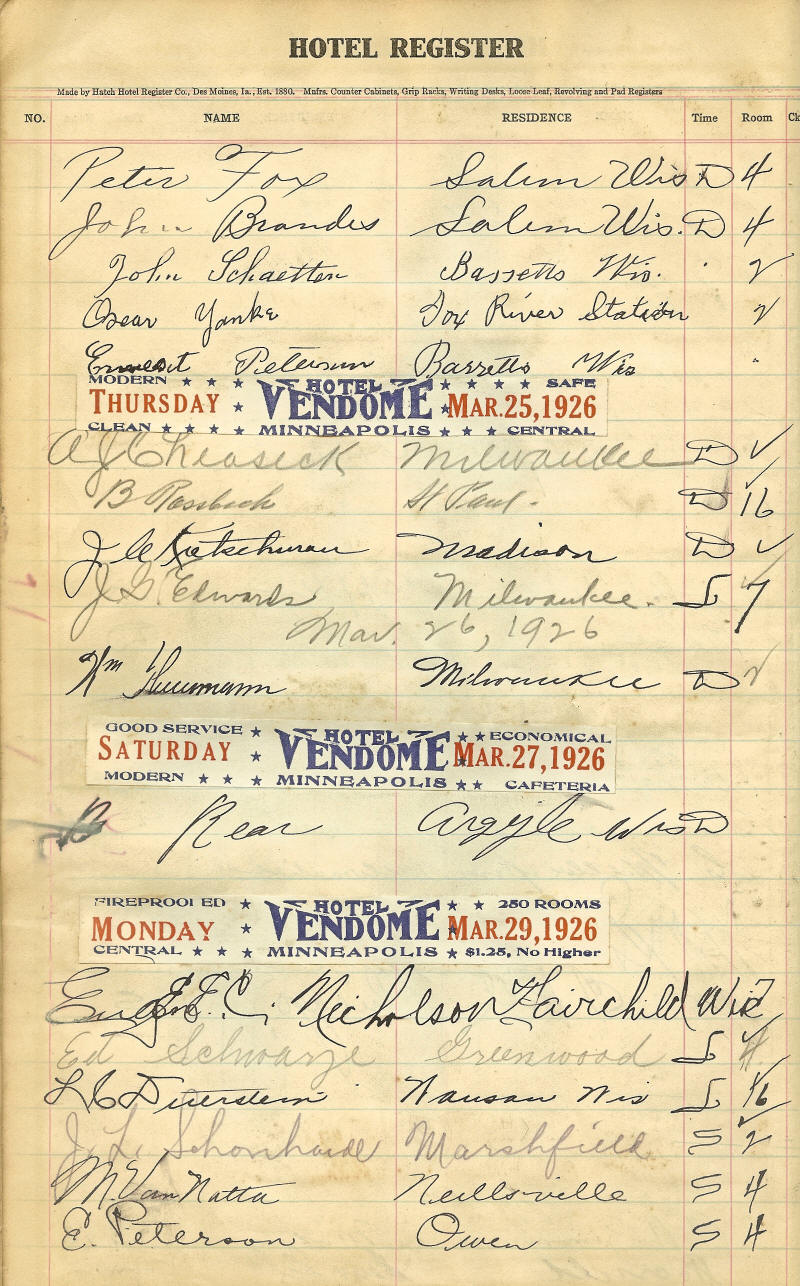 HOTEL REGISTER
Made by Hatch Hotel Register Co., Des Moines, Ia., Est. 1880. Mnfrs. Counter Cabinets, Grip Racks, Writing Desks, Loose Leaf, Revolving and Pad Registers
NO. NAME RESIDENCE Time Room Ck
Peter Fox Salem Wis D 4
John Brandes Salem Wis. D 4
John Schaetten Bassetts Wis. 2
Oscar Yanke Fox River Station 2
Ernest Peterson Bassetts Wis "
MODERN ★ ★ ★ HOTEL ★ ★ ★ ★ SAFE
THURSDAY ★ VENDOME ★ MAR. 25, 1926
CLEAN ★ ★ ★ ★ MINNEAPOLIS ★ ★ CENTRAL
A J Milwaukee D ✓
B Rossbach St Paul - D 16
J Madison D ✓
J. G. Edwards Milwaukee. L 7
Mar. 26, 1926
Wm Milwaukee D 2
GOOD SERVICE ★ HOTEL ★ ★ ECONOMICAL
SATURDAY ★ VENDOME ★ MAR. 27, 1926
MODERN ★ ★ ★ MINNEAPOLIS ★ ★ CAFETERIA
Rear Argyle Wis D
FIREPROOFED ★ HOTEL ★ ★ 250 ROOMS
MONDAY ★ VENDOME ★ MAR. 29, 1926
CENTRAL ★ ★ ★ MINNEAPOLIS ★ $1.25, No Higher
E. C. Nicholson Fairchild Wis
Ed Schwarze Greenwood L 4
Wausau Wis L 16
J. L. Marshfield S 2
M. Van Natta Neillsville S 4
E. Peterson Owen S 4